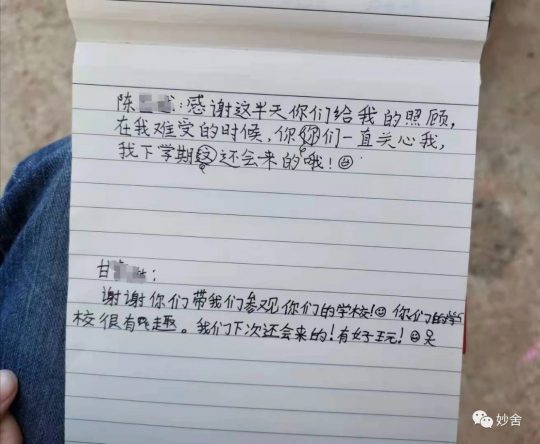 陈 :感谢这半天你们给我的照顾,
在我难受的时候,你你们一直关心我,
我下学期这还会来的哦!
甘 :
谢谢你们带我们参观你们的学校! 你们的学
校很有趣。我们下次还会来的!有好玩!
妙舍